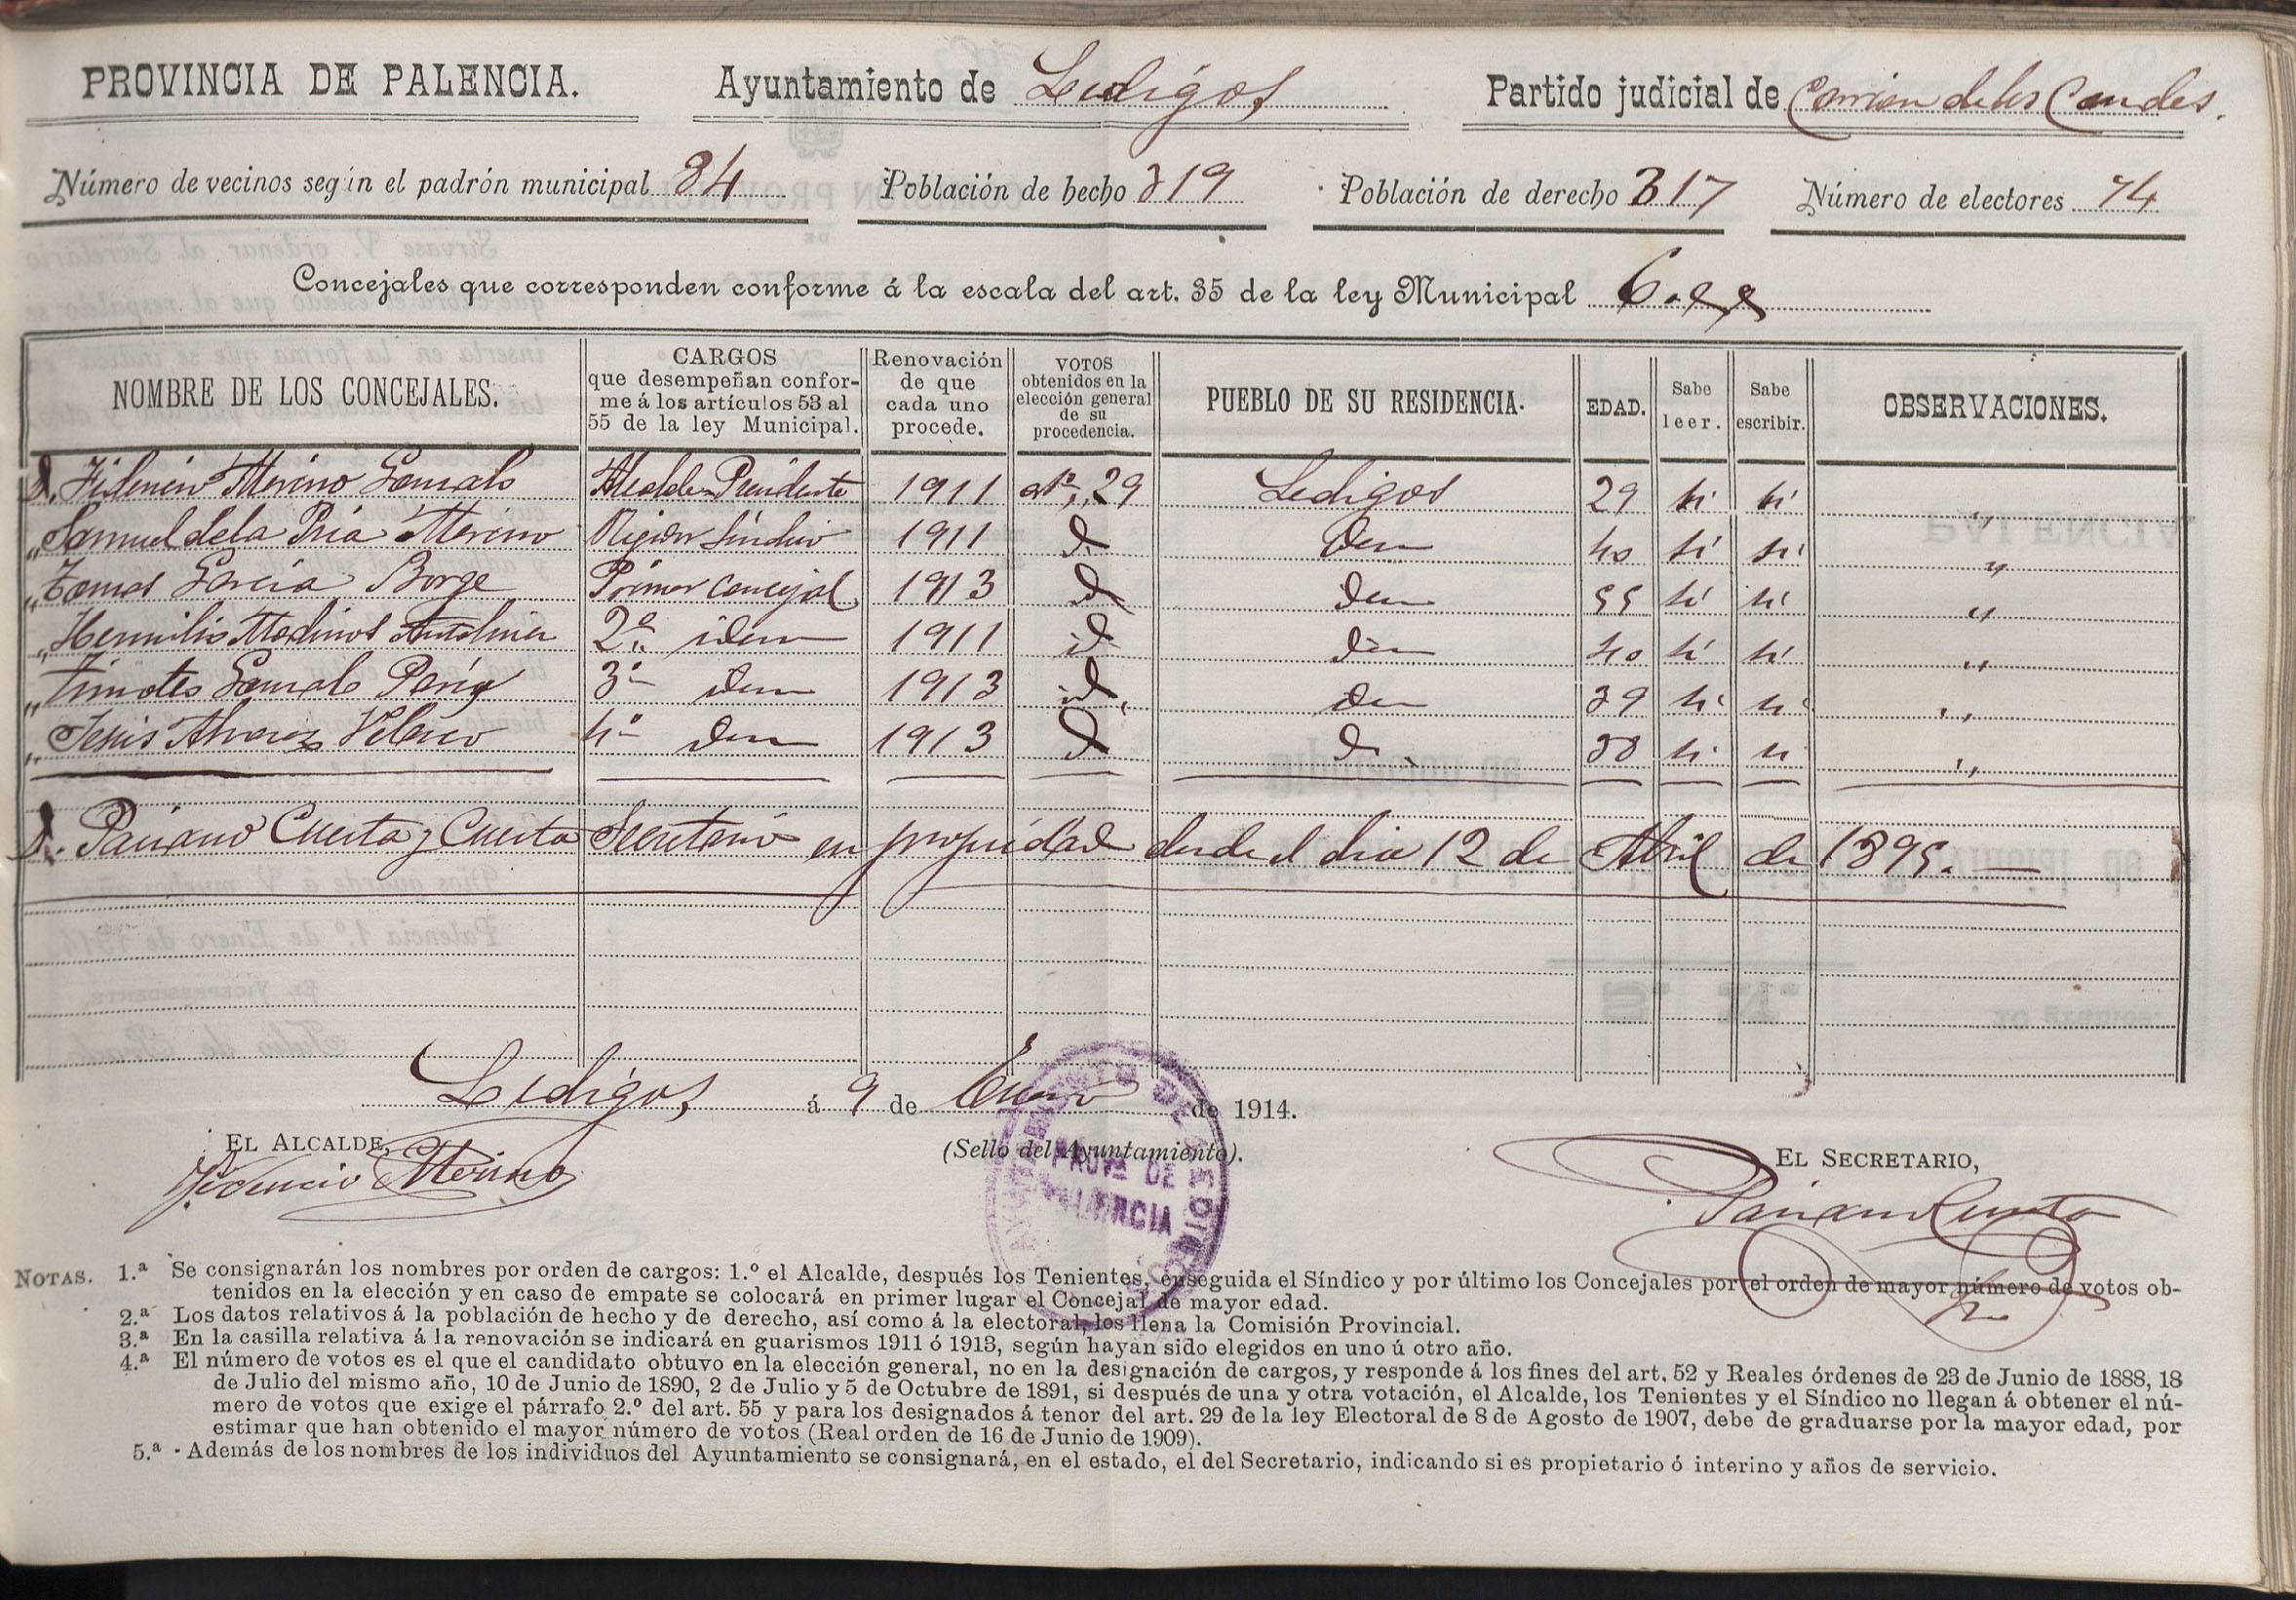 PROVINCIA DE PALENCIA. Ayuntamiento de Ledigos Partido judicial de Carrion de los Condes.
Número de vecinos según el padrón municipal 84 Población de hecho 319 Población de derecho 317 Número de electores 74
Concejales que corresponden conforme á la escala del art. 35 de la ley Municipal 6
NOMBRE DE LOS CONCEJALES. CARGOS que desempeñan conforme á los artículos 53 al 55 de la ley Municipal. Renovación de que cada uno procede. VOTOS obtenidos en la elección general de su procedencia. PUEBLO DE SU RESIDENCIA. EDAD. Sabe leer. Sabe escribir. OBSERVACIONES.
D. Fidencio Merino Gonzalo Alcalde Presidente 1911 artº 29 Ledigos 29 si si "
" Samuel de la Pria Merino Regidor Sindico 1911 id Idem 40 si si "
" Tomas Garcia Borge Primer concejal 1913 id Idem 55 si si "
" Hermilio Medinos Antolinez 2º idem 1911 id idem 40 si si "
" Timoteo Gonzalo Perez 3º idem 1913 id, idem 39 si si "
" Jesus Alvarez Velasco 4º idem 1913 id id. 38 si si "
D. Pariano Cuesta y Cuesta Secretario en propiedad desde el dia 12 de Abril de 1895.
Ledigos á 9 de Enero de 1914.
EL ALCALDE, (Sello del Ayuntamiento). EL SECRETARIO,
Fidencio Merino
PROVª DE
PALENCIA
Pariano Cuesta
NOTAS. 1.ª Se consignarán los nombres por orden de cargos: 1.º el Alcalde, después los Tenientes, enseguida el Síndico y por último los Concejales por el orden de mayor número de votos ob-
tenidos en la elección y en caso de empate se colocará en primer lugar el Concejal de mayor edad.
2.ª Los datos relativos á la población de hecho y de derecho, así como á la electoral, los llena la Comisión Provincial.
3.ª En la casilla relativa á la renovación se indicará en guarismos 1911 ó 1913, según hayan sido elegidos en uno ú otro año.
4.ª El número de votos es el que el candidato obtuvo en la elección general, no en la designación de cargos, y responde á los fines del art. 52 y Reales órdenes de 23 de Junio de 1888, 18
de Julio del mismo año, 10 de Junio de 1890, 2 de Julio y 5 de Octubre de 1891, si después de una y otra votación, el Alcalde, los Tenientes y el Síndico no llegan á obtener el nú-
mero de votos que exige el párrafo 2.º del art. 55 y para los designados á tenor del art. 29 de la ley Electoral de 8 de Agosto de 1907, debe de graduarse por la mayor edad, por
estimar que han obtenido el mayor número de votos (Real orden de 16 de Junio de 1909).
5.ª Además de los nombres de los individuos del Ayuntamiento se consignará, en el estado, el del Secretario, indicando si es propietario ó interino y años de servicio.